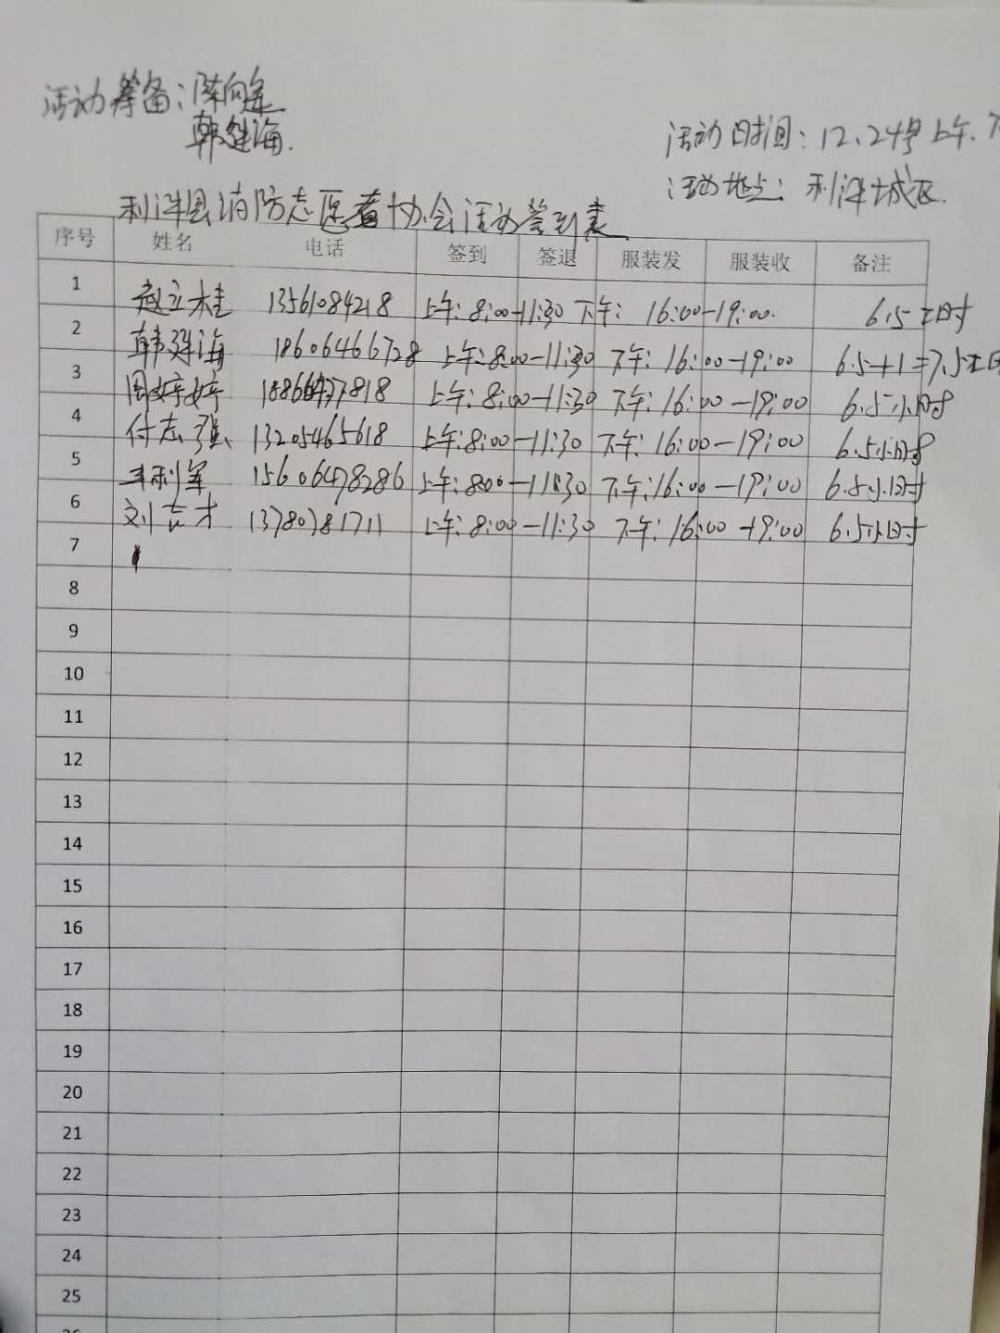 活动筹备：陈向
韩廷海.
活动时间：12.24号上午.
活动地点：利津城区.
利津县消防志愿者协会活动签到表
序号 姓名 电话 签到 签退 服装发 服装收 备注
1 赵立桂 13561084218 上午：8:00-11:30 下午： 16:00-19:00. 6.5小时
2 韩廷海 18606466728 上午：8:00-11:30 下午：16:00-19:00 6.5+1=7.5小时
3 周婷婷 上午：8:00-11:30 下午：16:00-19:00 6.5小时
4 付志强 13205465618 上午：8:00-11:30 下午：16:00-19:00 6.5小时
5 利军 15606478286 上午：8:00-11:30 下午：16:00-19:00 6.5小时
6 刘吉才 13780781711 上午：8:00-11:30 下午：16:00-19:00 6.5小时
7
8
9
10
11
12
13
14
15
16
17
18
19
20
21
22
23
24
25